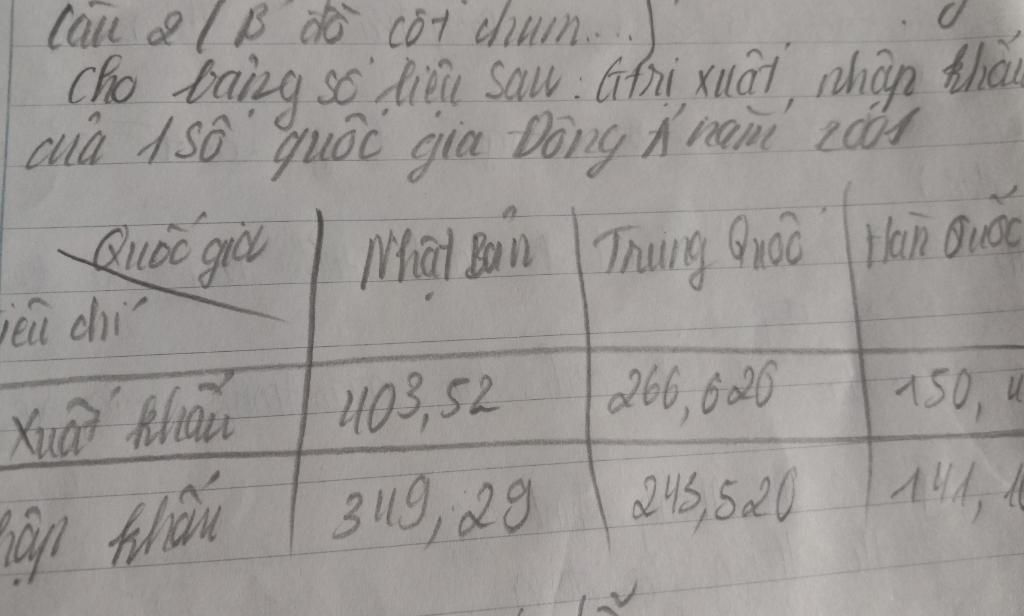 Câu 2 ( B đồ cột chùm...)
Cho bảng số liệu sau: Gtrị xuất, nhập khẩu
của 1 số quốc gia Đông Á năm 2001
Quốc gia Nhật Bản Trung Quốc Hàn Quốc
iêu chí
Xuất khẩu 403,52 266,620 150,4
hập khẩu 349,29 243,520 141,1